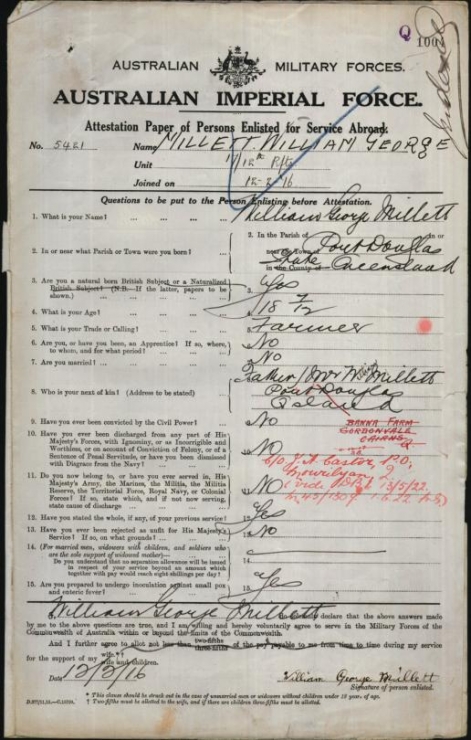 Q 100
Indexed
AUSTRALIAN MILITARY FORCES.
AUSTRALIAN IMPERIAL FORCE.
Attestation Paper of Persons Enlisted for Service Abroad.
No. 5421 Name MILLETT. WILLIAM GEORGE
Unit
Joined on
Questions to be put to the Person Enlisting before Attestation.
1. What is your Name? ... 1. William George Millett
2. In or near what Parish or Town were you born? ... 2. In the Parish of Port Douglas in or
near the Town of
in the County of State Queensland
3. Are you a natural born British Subject or a Naturalized
British Subject? (N.B.—If the latter, papers to be
shown.) ... 3. Yes
4. What is your Age? ... 4. 18 7/12
5. What is your Trade or Calling? ... 5. Farmer
6. Are you, or have you been, an Apprentice? If so, where,
to whom, and for what period? ... 6. No
7. Are you married? ... 7. No
8. Who is your next of kin? (Address to be stated) ... 8. Father Mr Wm Millett
Port Douglas
Qsland
9. Have you ever been convicted by the Civil Power? ... 9. No
BANNA FARM
GORDONVALE
CAIRNS
10. Have you ever been discharged from any part of His
Majesty's Forces, with Ignominy, or as Incorrigible and
Worthless, or on account of Conviction of Felony, or of a
Sentence of Penal Servitude, or have you been dismissed
with Disgrace from the Navy? ... 10. No
11. Do you now belong to, or have you ever served in, His
Majesty's Army, the Marines, the Militia, the Militia
Reserve, the Territorial Force, Royal Navy, or Colonial
Forces? If so, state which, and if not now serving,
state cause of discharge ... 11. No
12. Have you stated the whole, if any, of your previous service? 12. Yes
13. Have you ever been rejected as unfit for His Majesty's
Service? If so, on what grounds? ... 13. No
14. (For married men, widowers with children, and soldiers who
are the sole support of widowed mother)—
Do you understand that no separation allowance will be issued
in respect of your service beyond an amount which
together with pay would reach eight shillings per day? 14.
15. Are you prepared to undergo inoculation against small pox
and enteric fever? ... 15. Yes
I, William George Millett do solemnly declare that the above answers made
by me to the above questions are true, and I am willing and hereby voluntarily agree to serve in the Military Forces of the
Commonwealth of Australia within or beyond the limits of the Commonwealth.
And I further agree to allot not less than two-fifths three-fifths of the pay payable to me from time to time during my service
for the support of my wife.
wife and children.
Date 12/2/16
William George Millett
Signature of person enlisted.
* This clause should be struck out in the case of unmarried men or widowers without children under 18 years of age.
† Two-fifths must be allotted to the wife, and if there are children three-fifths must be allotted.